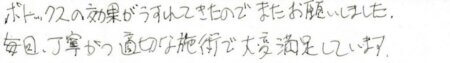 ボトックスの効果がうすれてきたのでまたお願いしました.
毎回、丁寧かつ適切な施術で大変満足しています.